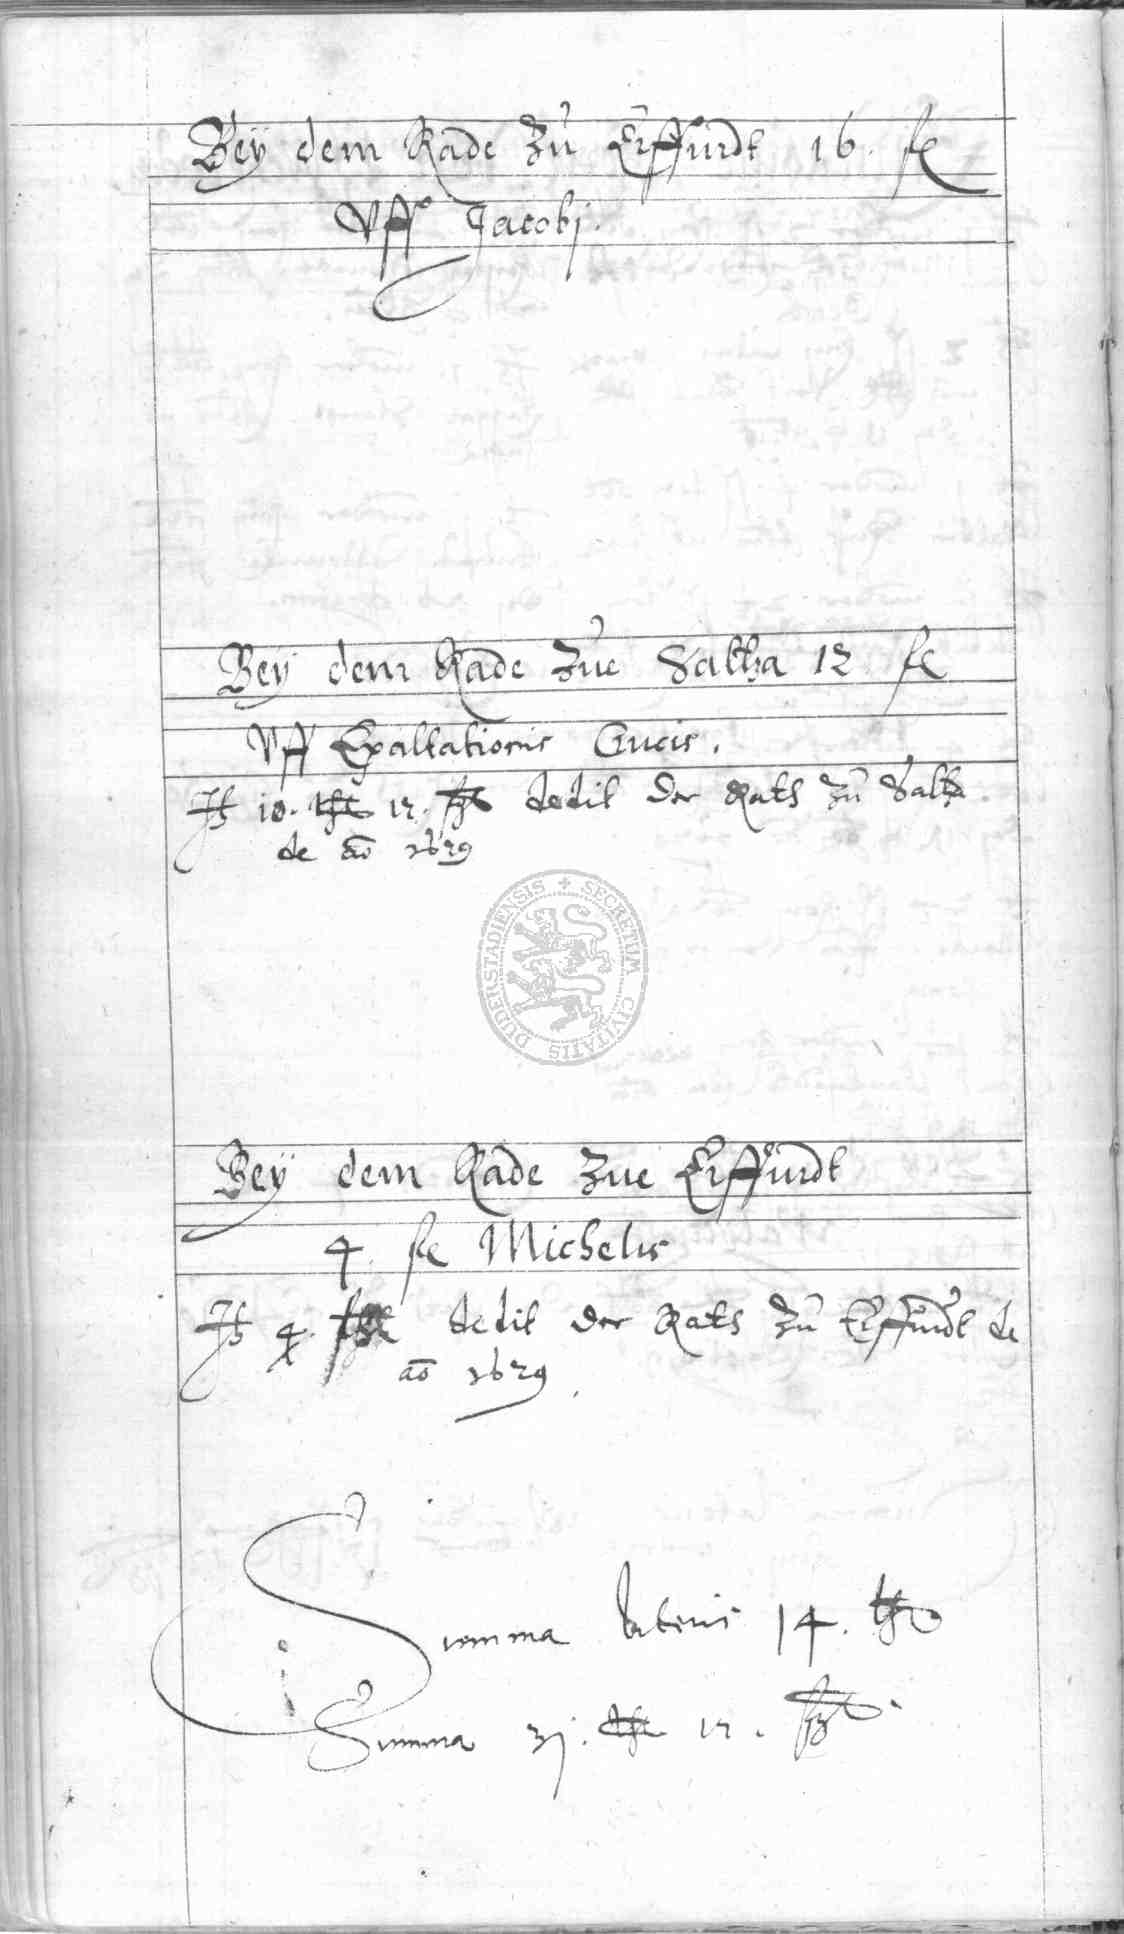 Bey dem Rade Zu Erffurdt 16. fl
Vff Jacobj.
Bey dem Rade Zue Saltza 12 fl
Vff Exaltationis Crucis.
It 10. thl 12. ß dedit der Rath zu Saltza
de ao 1629
Bey dem Rade Zue Erffurdt
4. fl Michelis
It 4. dedit der Rath zu Erffurdt de
ao 1629
Summa lateris 14. thl
Summa 31. thl 12. ß
SECRETUM CIVITATIS DUDERSTADIENSIS